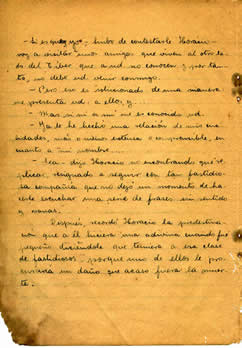 - Si es que voy - hubo de contestarle Horacio -
voy a visitar unos amigos que viven al otro la-
do del Tíber que a ud. no conocen y por tan-
to, no debe ud. venir conmigo.
- Pero eso es solucionado de una manera:
me presenta ud. a ellos, y...
- Mas si ni a mí me es conocido ud.
- Ya le he hecho una relación de mis cua-
lidades, más o menos extensa o comprensible, en
cuanto a mi nombre...
- Sea - dijo Horacio no encontrando qué re-
plicar, resignado a seguir con tan fastidio-
sa compañía que no dejó un momento de ha-
cerle escuchar una serie de frases sin sentido
y vanas.
Después, recordó Horacio la predestina-
ción que a él hiciera una adivina cuando fue
pequeño diciéndole que temiera a esa clase
de fastidiosos porque uno de ellos le pro-
curaría un daño, que acaso fuera la muer-
te.